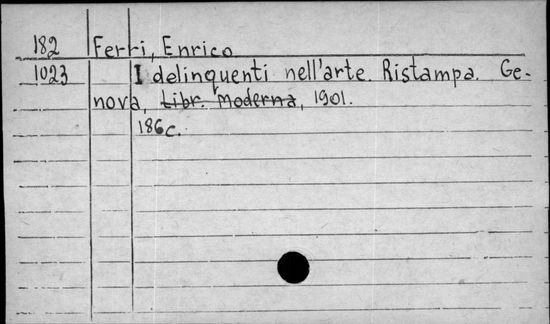 182 Ferri, Enrico
1023 I delinquenti nell'arte. Ristampa. Ge-
nova, Libr. Moderna, 1901.
186 c.